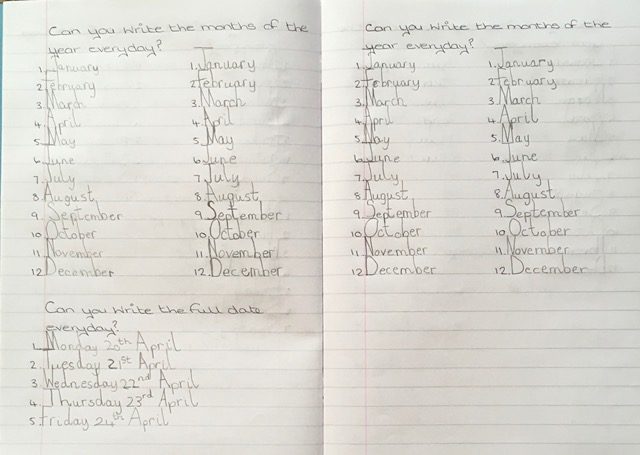 Can you write the months of the
year everyday?
1. January
2. February
3. March
4. April
5. May
6. June
7. July
8. August
9. September
10. October
11. November
12. December
1. January
2. February
3. March
4. April
5. May
6. June
7. July
8. August
9. September
10. October
11. November
12. December
Can you write the full date
everyday?
1. Monday 20th April
2. Tuesday 21st April
3. Wednesday 22nd April
4. Thursday 23rd April
5. Friday 24th April
Can you write the months of the
year everyday?
1. January
2. February
3. March
4. April
5. May
6. June
7. July
8. August
9. September
10. October
11. November
12. December
1. January
2. February
3. March
4. April
5. May
6. June
7. July
8. August
9. September
10. October
11. November
12. December